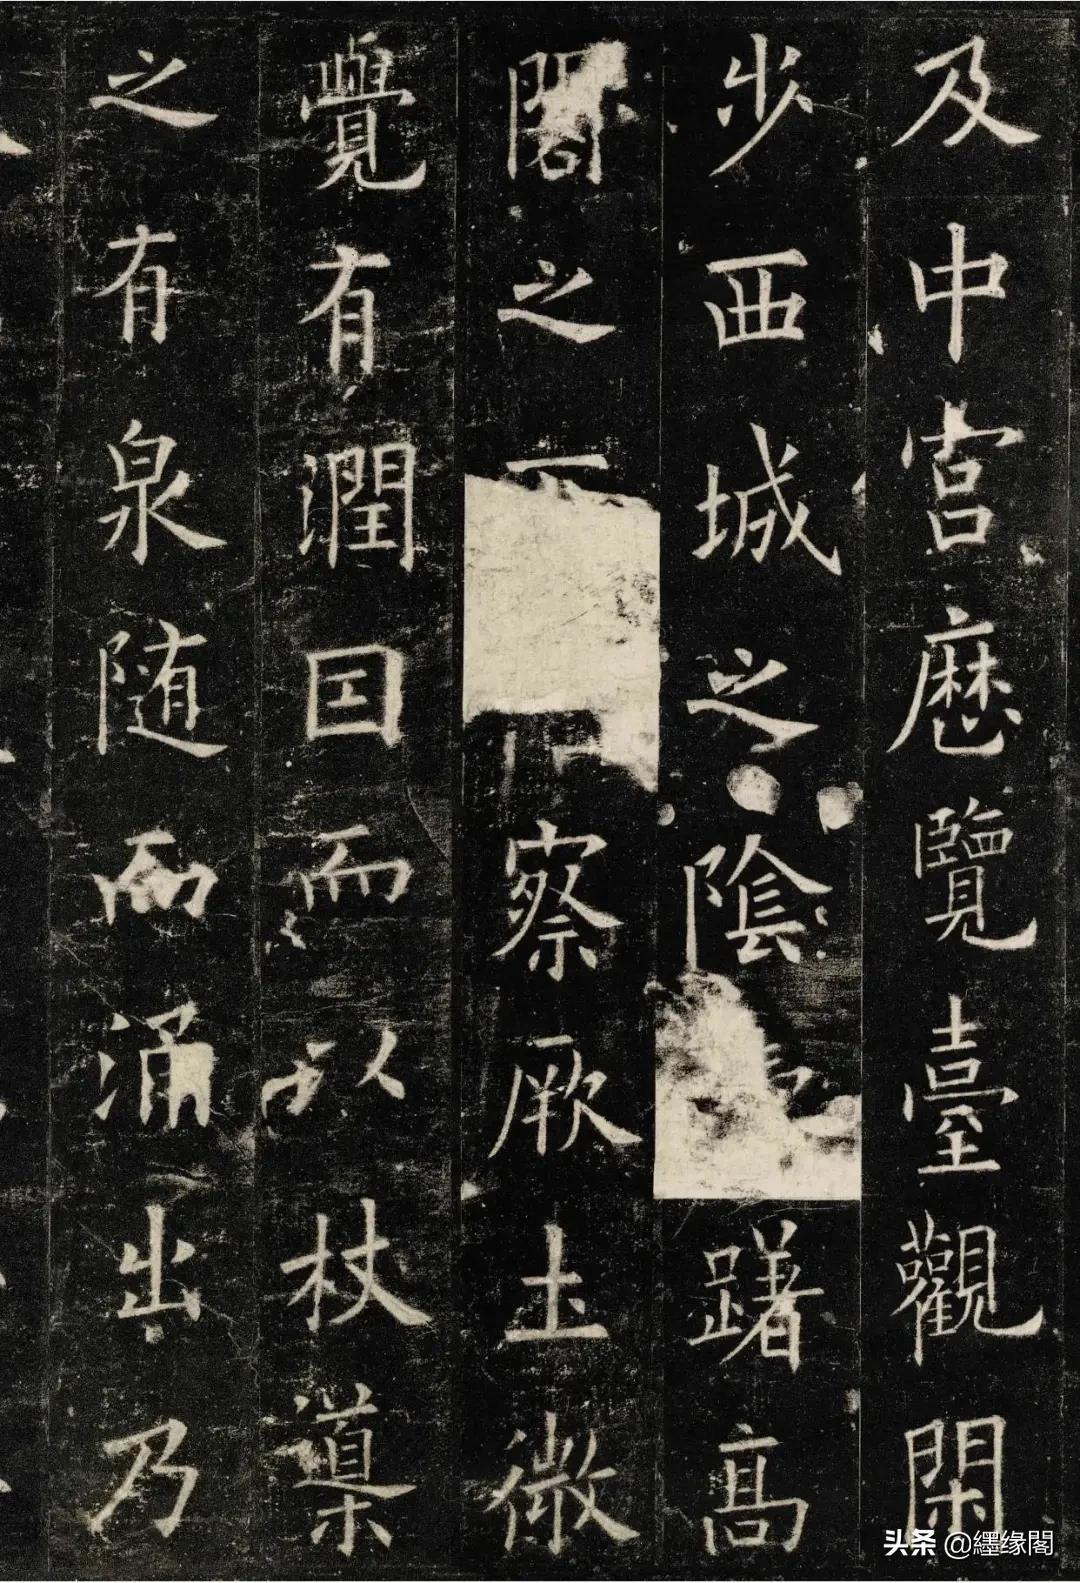 及中宮歷覽臺觀閑
步西城之陰躇高
閣之下察厥土微
覺有潤因而以杖導
之有泉随而涌出乃
头条 @纆缘閣